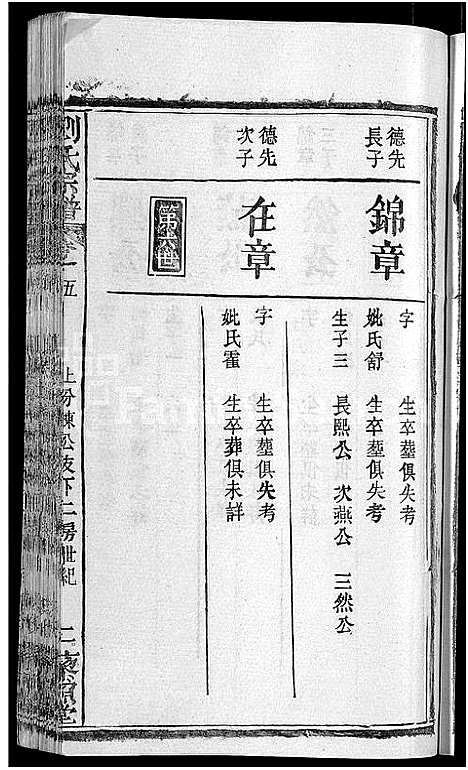 德先
長子
錦章
字 生卒塟俱失考
妣氏舒 生卒塟俱失考
生子三 長熙公 次燕公 三然公
德先
次子
在章
字 生卒塟俱失考
妣氏霍 生卒葬俱未詳
第六世
劉氏宗譜
五
上份棟公支下二房世紀
二